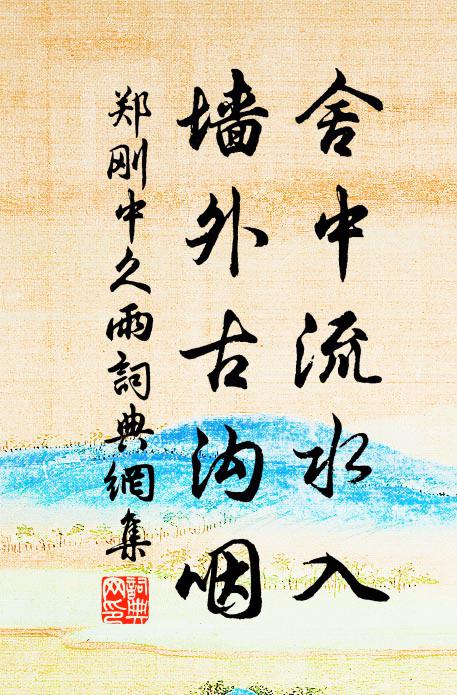 舍中流水入
墙外古沟咽
郑刚中久雨詞典網集
詞典網印